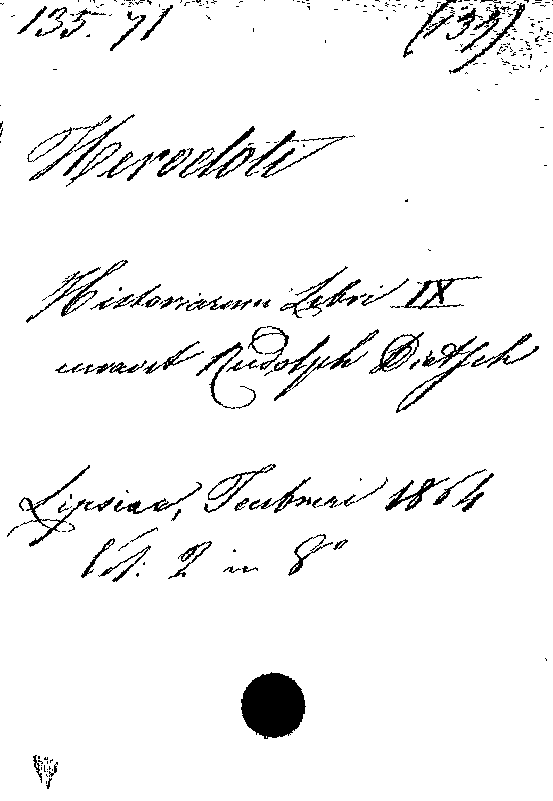 135. 71 (133)
Herodoti
Historiarum Libri IX
curavit Rudolph Dietsch
Lipsiae, Teubneri 1864
Vol: 2 in 8º